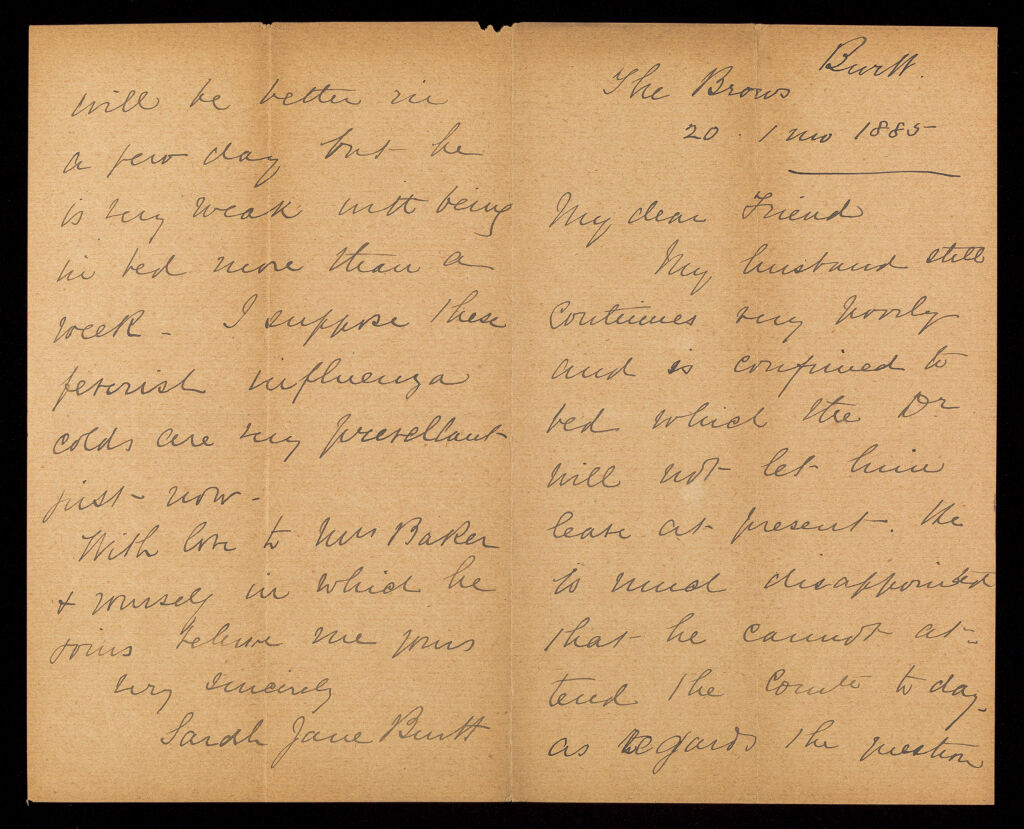 Burtt.
The Brows
20 . 1 mo 1885
My dear Friend
My husband still
continues very poorly
and is confined to
bed which the Dr
will not let him
leave at present. He
is much disappointed
that he cannot at-
tend the Comte to day-
as regards the question
will be better in
a few day but he
is very weak with being
in bed more than a
week - I suppose these
feverish influenza
colds are very prevellant
just now -
With love to Mrs Baker
& yourself in which he
joins believe me yours
very sincerely
Sarah Jane Burtt